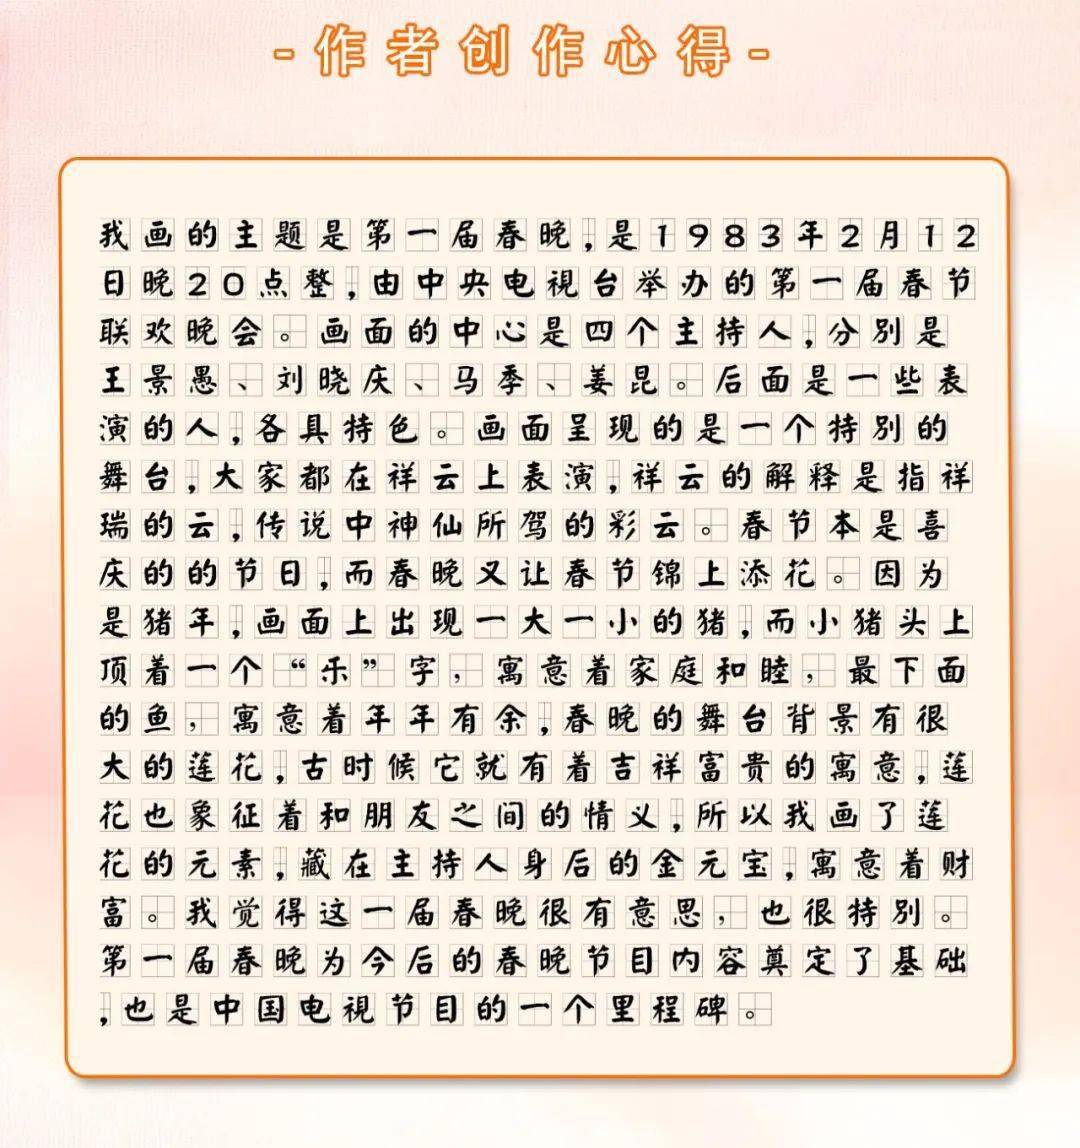 -作者创作心得-
我画的主题是第一届春晚,是1983年2月12
日晚20点整,由中央电視台举办的第一届春节
联欢晚会。画面的中心是四个主持人,分别是
王景愚、刘晓庆、马季、姜昆。后面是一些表
演的人,各具特色。画面呈现的是一个特别的
舞台,大家都在祥云上表演,祥云的解释是指祥
瑞的云,传说中神仙所驾的彩云。春节本是喜
庆的的节日,而春晚又让春节锦上添花。因为
是猪年,画面上出现一大一小的猪,而小猪头上
顶着一个“乐”字,寓意着家庭和睦,最下面
的鱼,寓意着年年有余,春晚的舞台背景有很
大的莲花,古时候它就有着吉祥富贵的寓意,莲
花也象征着和朋友之间的情义,所以我画了莲
花的元素,藏在主持人身后的金元宝,寓意着财
富。我觉得这一届春晚很有意思,也很特别。
第一届春晚为今后的春晚节目内容奠定了基础
,也是中国电視节目的一个里程碑。